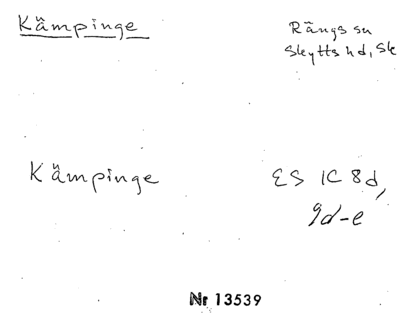 Kämpinge
Rängs sn
Skytts hd, Sk
Kämpinge
ES 1C 8d,
9d-e
Nr 13539